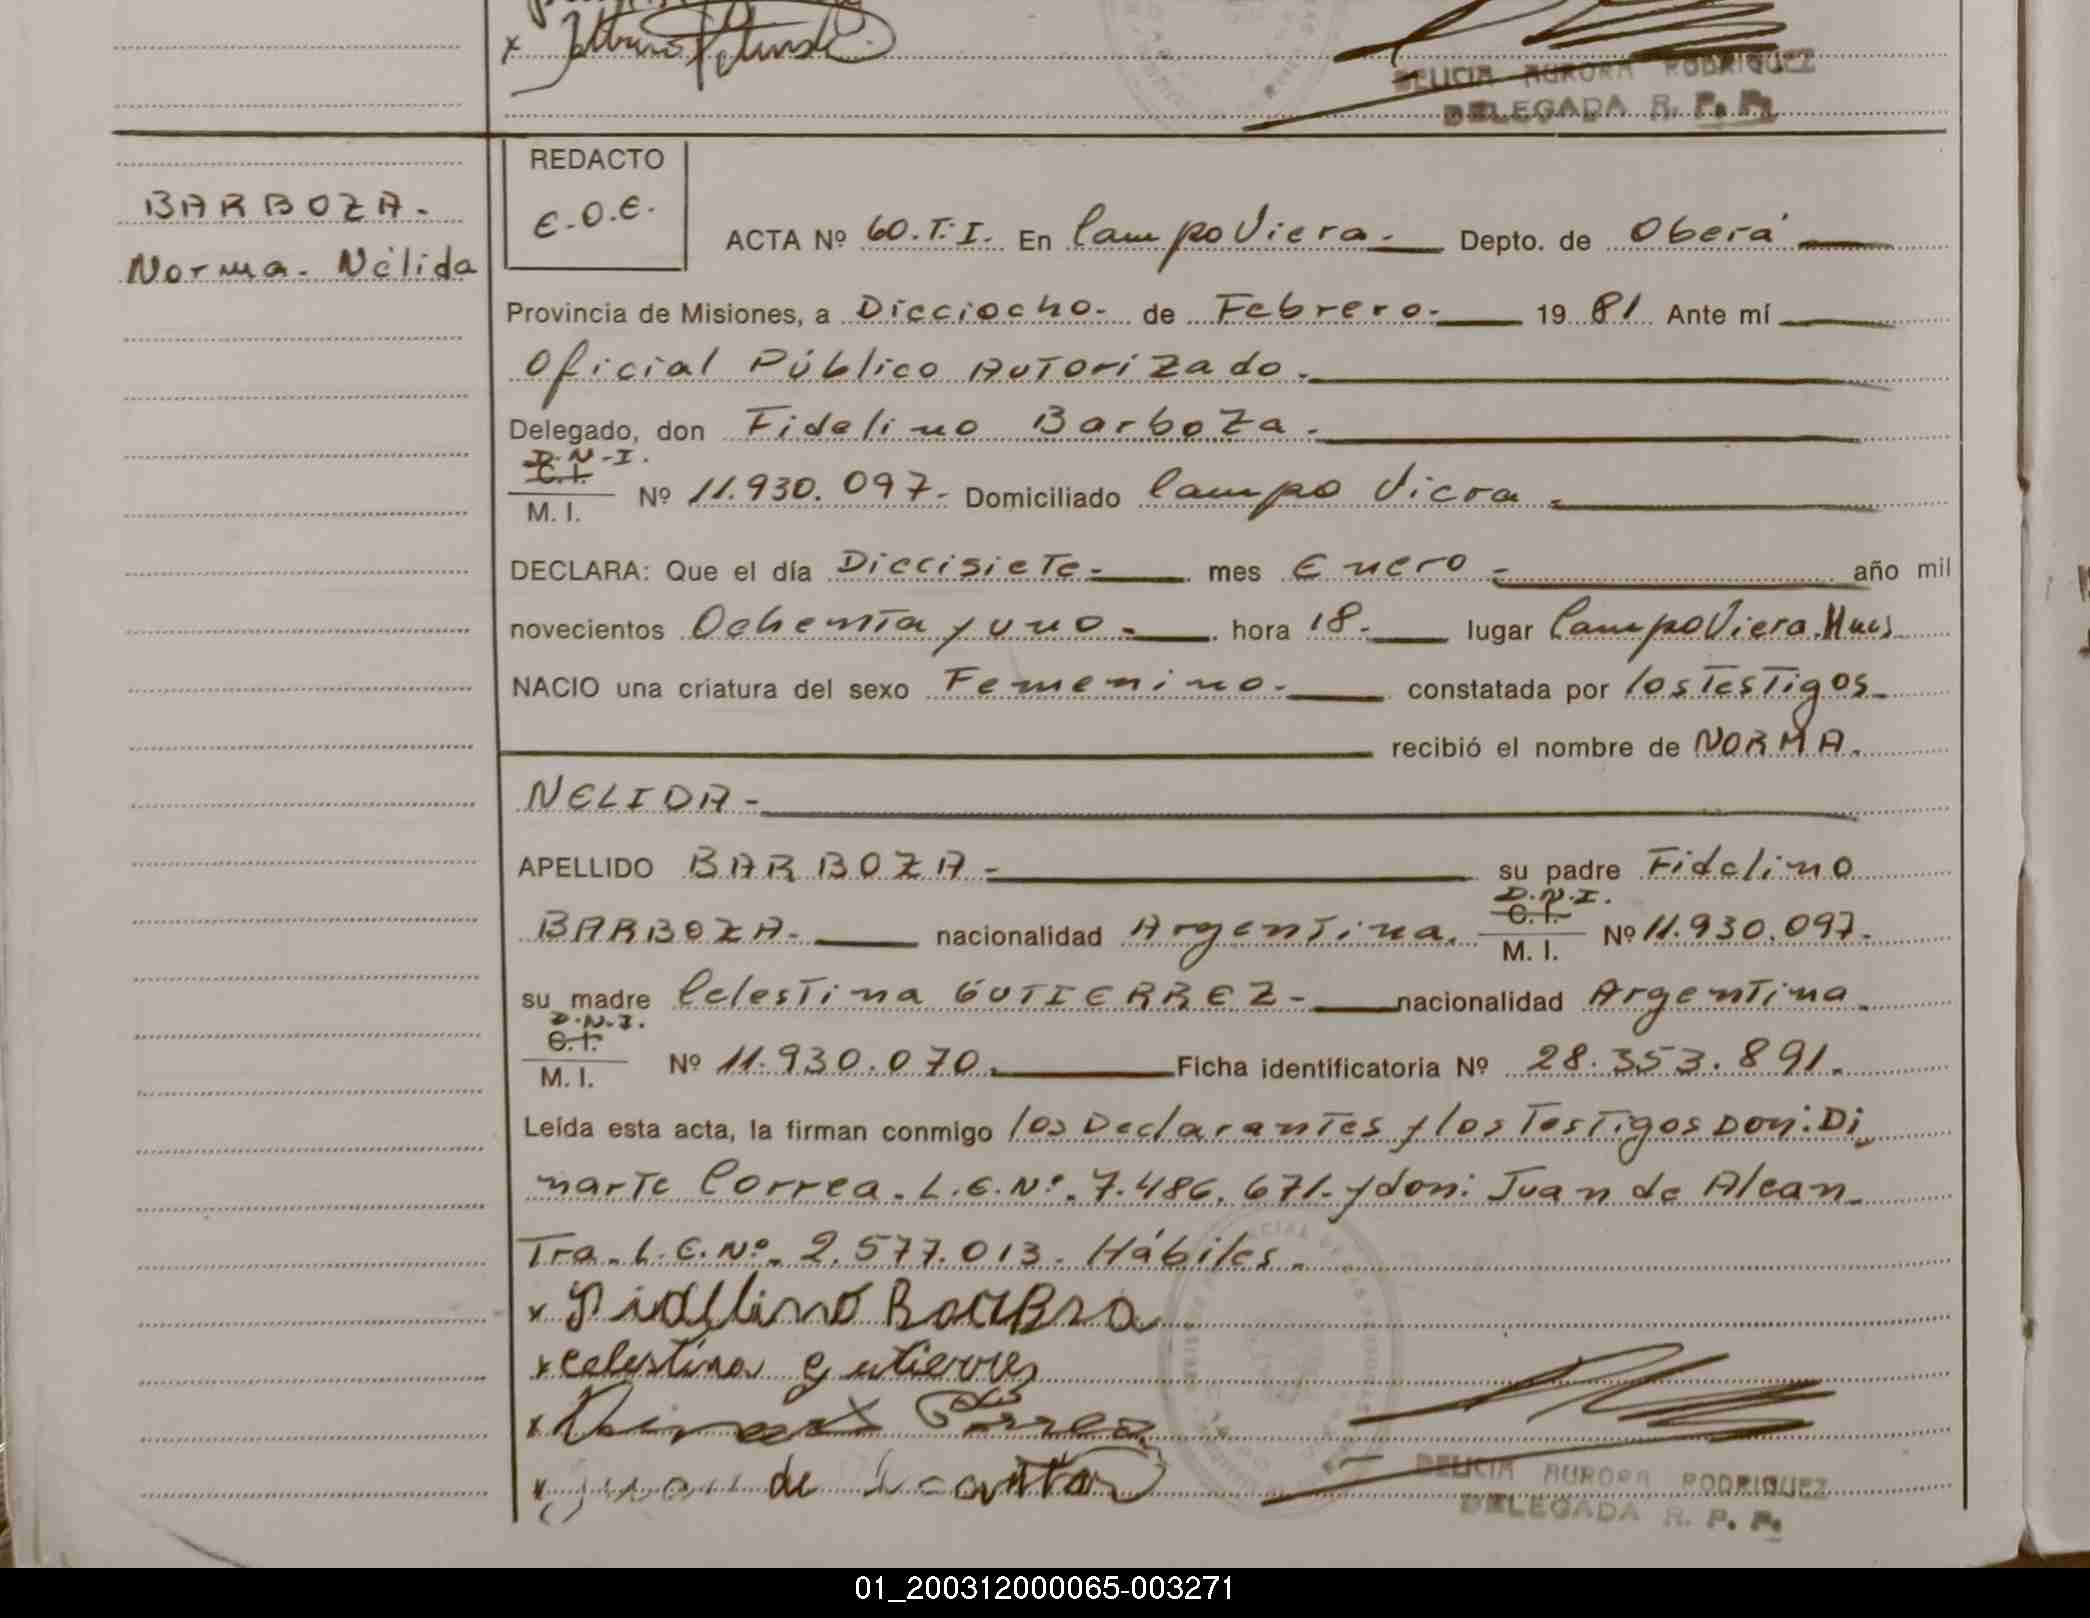 DELICIA AURORA RODRIGUEZ
DELEGADA R. P. P.
BARBOZA.
Norma. Nélida
REDACTO
E.O.E.
ACTA Nº 60.T.I. En Campo Viera. Depto. de Oberá
Provincia de Misiones, a Dieciocho. de Febrero. 19 81 Ante mí
Oficial Público Autorizado.
Delegado, don Fidelino Barboza.
D.N.I.
C.I.
M. I. Nº 11.930.097. Domiciliado Campo Viera.
DECLARA: Que el día Diecisiete. mes Enero año mil
novecientos Ochenta y uno. hora 18. lugar Campo Viera. Mnes
NACIO una criatura del sexo Femenino. constatada por los Testigos
recibió el nombre de NORMA.
NELIDA
APELLIDO BARBOZA su padre Fidelino
D.N.I.
BARBOZA. nacionalidad Argentina. C.I. M. I. Nº 11.930.097.
su madre Celestina GUTIERREZ nacionalidad Argentina.
D.N.I.
C.I.
M. I. Nº 11.930.070. Ficha identificatoria Nº 28.353.891.
Leída esta acta, la firman conmigo los Declarantes y los Testigos Don: Di
narte Correa. L.E.Nº. 7.486.671. y don: Juan de Alcan
Tra. L.E.Nº. 2.577.013. Hábiles.
x Fidelino Barboza
x celestina gutierres
x Correa
x Juan de
DELICIA AURORA RODRIGUEZ
DELEGADA R. P. P.
01_200312000065-003271